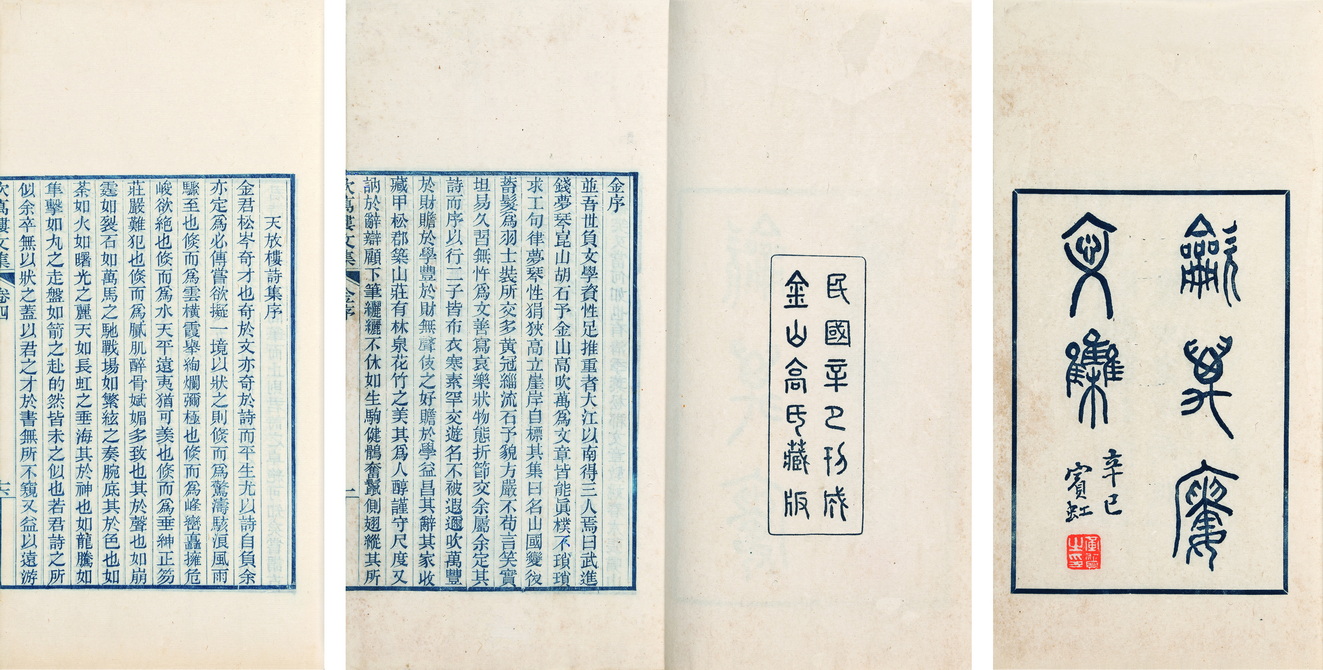 龡萬廔
文集
辛巳
賓虹
民國辛巳刊成
金山高氏藏版
金序
並吾世負文學資性足推重者大江以南得三人焉曰武進
錢夢琴崑山胡石予金山高吹萬為文章皆能眞樸不瑣瑣
求工句律夢琴性狷狹高立崖岸自標其集曰名山國變後
翦髮為羽士裝所交多黃冠緇流石予貌方嚴不苟言笑實
坦易久習無忤為文善寫哀樂狀物態折節交余屬余定其
詩而序以行二子皆布衣寒素罕交遊名不被遐邇吹萬豐
於財贍於學豐於財無聲伎之好贍於學益昌其辭其家收
藏甲松郡築山莊有林泉花竹之美其為人醇謹守尺度又
訥於辭辯顧下筆纚纚不休如生駒健鶻奮鬣側翅縱其所
吹萬樓文集 金序 一
天放樓詩集序
金君松岑奇才也奇於文亦奇於詩而平生尤以詩自負余
亦定為必傳嘗欲擬一境以狀之則倏而為驚濤駭浪風雨
驟至也倏而為雲橫霞舉絢爛彌極也倏而為峰巒矗擁危
峻欲絕也倏而為水天平遠夷猶可羨也倏而為垂紳正笏
莊嚴難犯也倏而為膩肌醉骨斌媚多致也其於聲也如崩
霆如裂石如萬馬之馳戰場如繁絃之奏腕底其於色也如
荼如火如曙光之麗天如長虹之垂海其於神也如龍騰如
隼擊如丸之走盤如箭之赴的然皆未之似也若君詩之所
似余卒無以狀之蓋以君之才於書無所不窺又益以遠游
吹萬樓文集 卷四 六